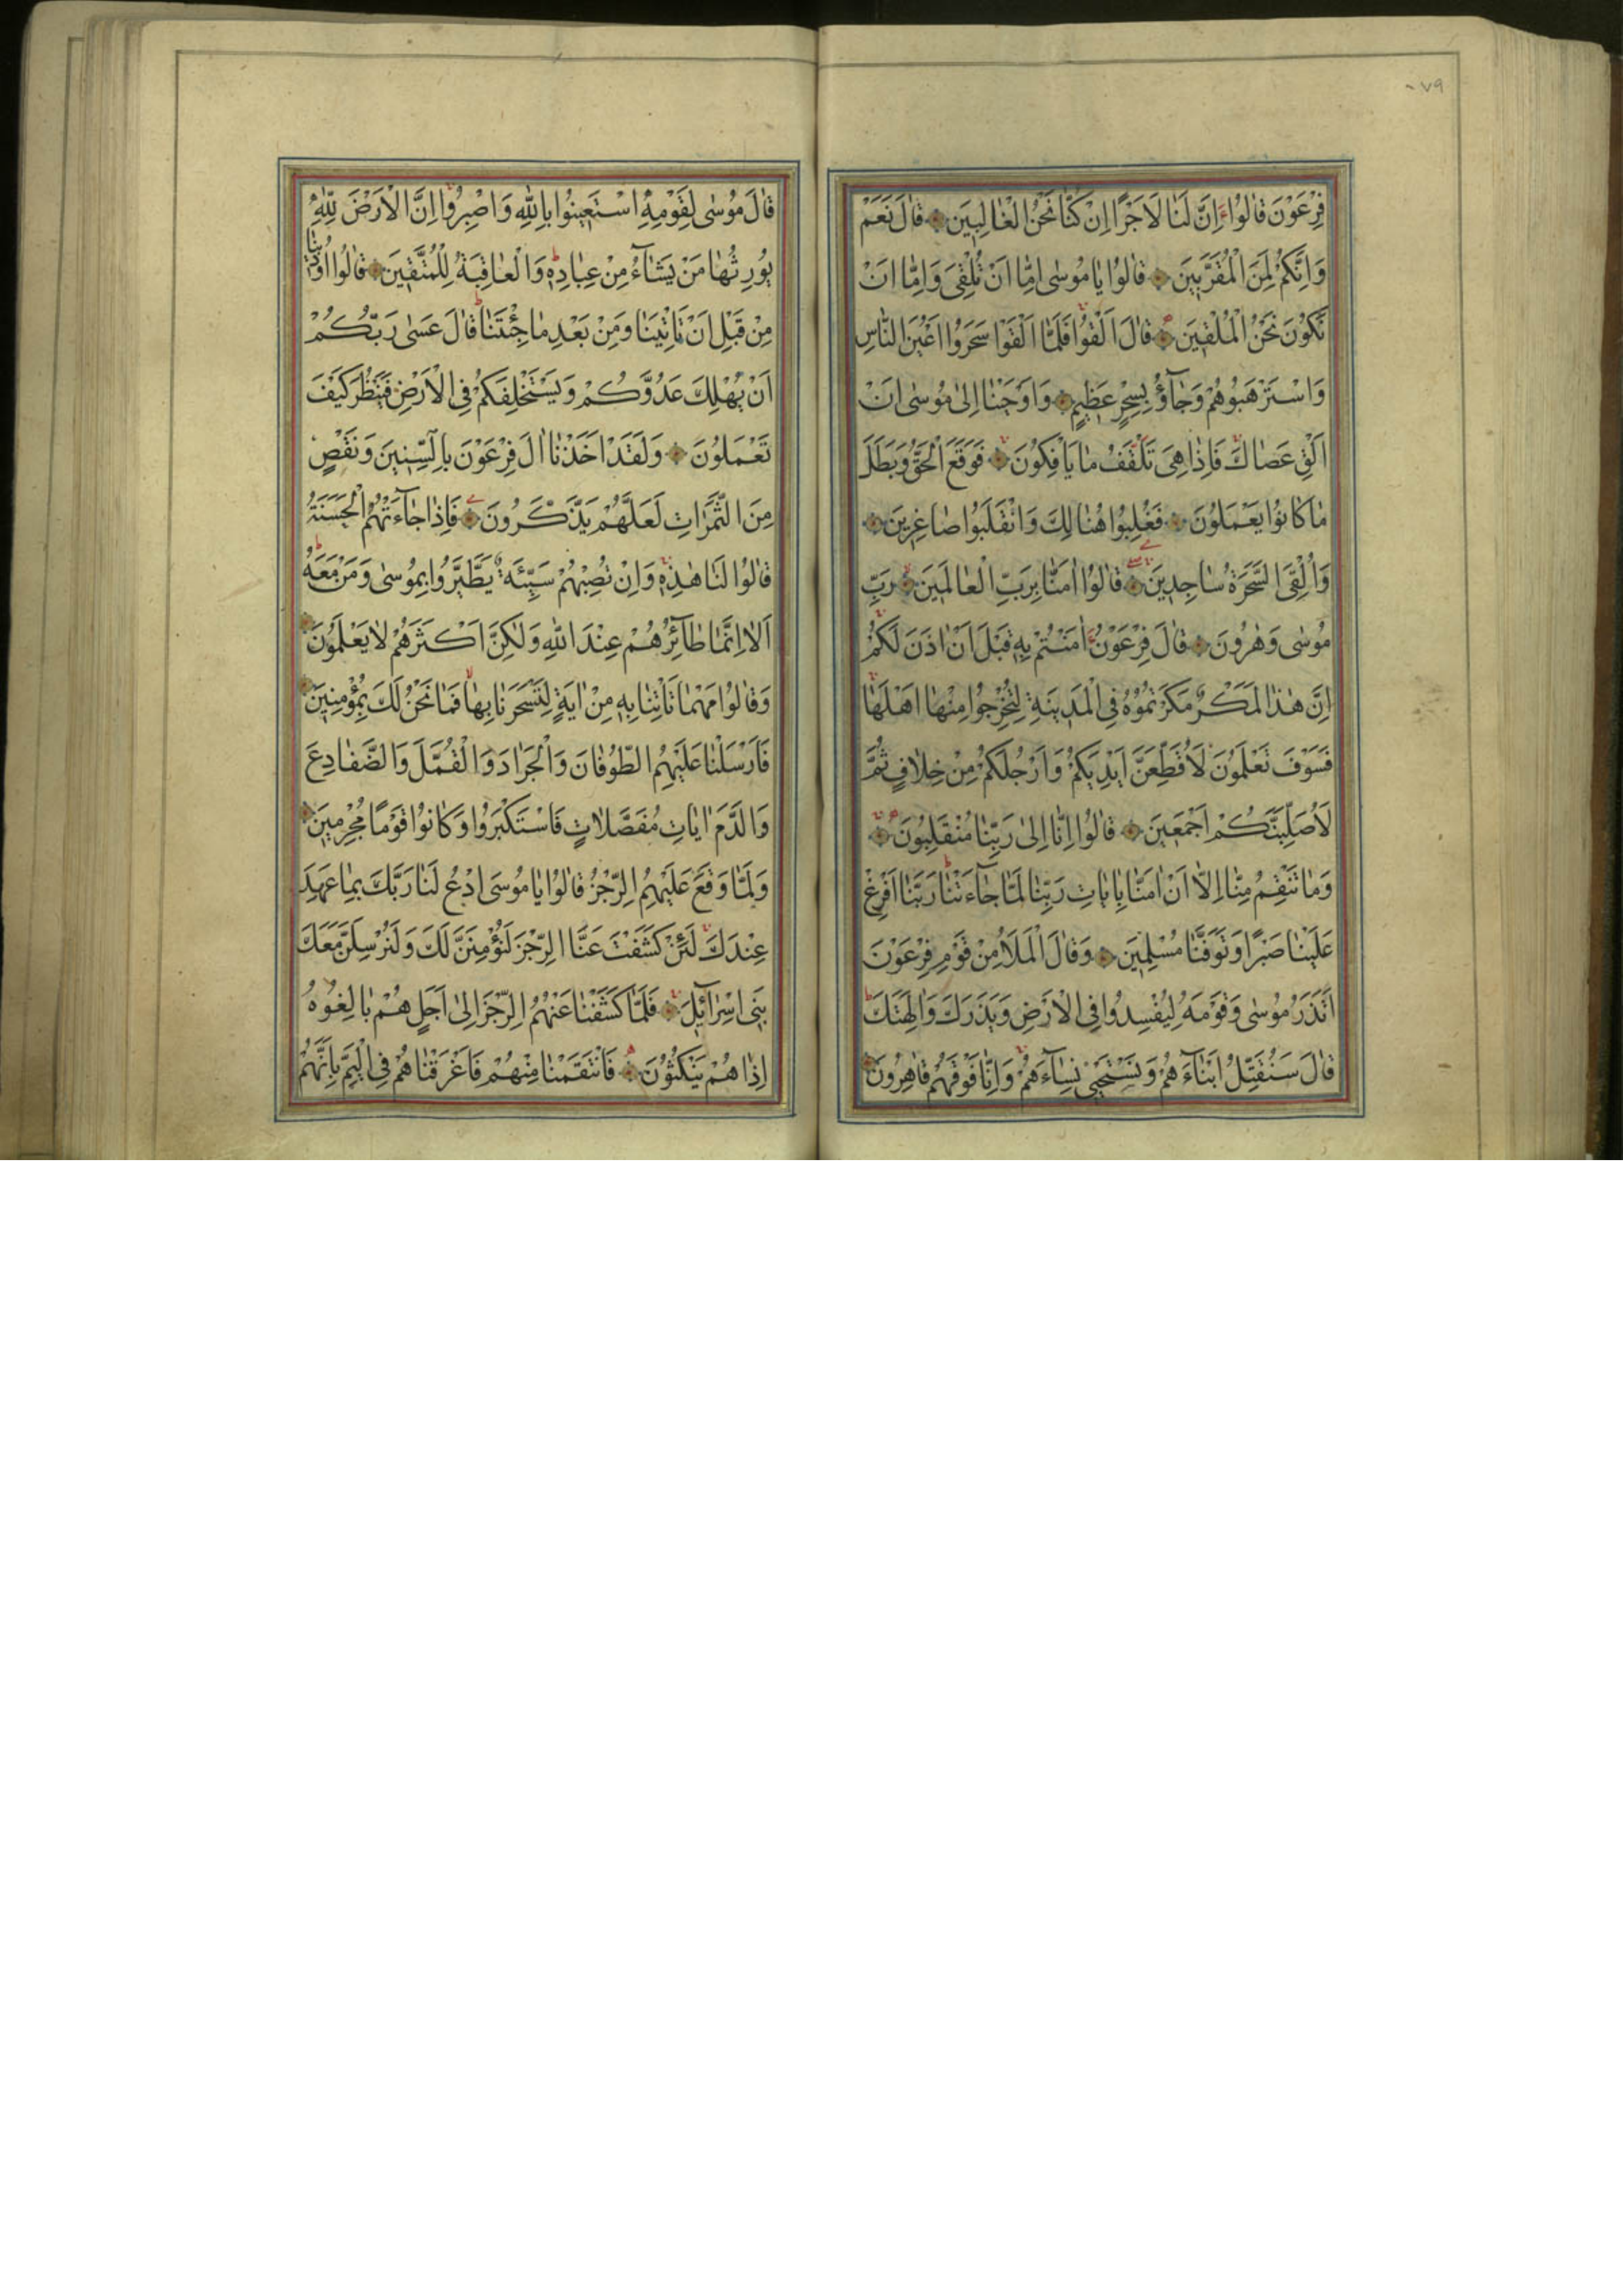 ٠٧٩
فِرْعَوْنَ قَالُوا ءَاِنَّ لَنَا لَاَجْرًا اِنْ كُنَّا نَحْنُ الْغَالِبِينَ قَالَ نَعَمْ
وَاِنَّكُمْ لَمِنَ الْمُقَرَّبِينَ قَالُوا يَا مُوسٰى اِمَّا اَنْ تُلْقِىَ وَاِمَّا اَنْ
نَكُونَ نَحْنُ الْمُلْقِينَ قَالَ اَلْقُوا فَلَمَّا اَلْقَوْا سَحَرُوا اَعْيُنَ النَّاسِ
وَاسْتَرْهَبُوهُمْ وَجَآؤُ بِسِحْرٍ عَظِيمٍ وَاَوْحَيْنَا اِلٰى مُوسٰى اَنْ
اَلْقِ عَصَاكَ فَاِذَا هِىَ تَلْقَفُ مَا يَاْفِكُونَ فَوَقَعَ الْحَقُّ وَبَطَلَ
مَا كَانُوا يَعْمَلُونَ فَغُلِبُوا هُنَالِكَ وَانْقَلَبُوا صَاغِرِينَ
وَاُلْقِىَ السَّحَرَةُ سَاجِدِينَ قَالُوا اٰمَنَّا بِرَبِّ الْعَالَمِينَ رَبِّ
مُوسٰى وَهٰرُونَ قَالَ فِرْعَوْنُ ءَاٰمَنْتُمْ بِهٖ قَبْلَ اَنْ اٰذَنَ لَكُمْ
اِنَّ هٰذَا لَمَكْرٌ مَكَرْتُمُوْهُ فِى الْمَدِينَةِ لِتُخْرِجُوا مِنْهَا اَهْلَهَا
فَسَوْفَ تَعْلَمُونَ لَاُقَطِّعَنَّ اَيْدِيَكُمْ وَاَرْجُلَكُمْ مِنْ خِلَافٍ ثُمَّ
لَاُصَلِّبَنَّكُمْ اَجْمَعِينَ قَالُوا اِنَّا اِلٰى رَبِّنَا مُنْقَلِبُونَ
وَمَا تَنْقِمُ مِنَّا اِلَّا اَنْ اٰمَنَّا بِاٰيَاتِ رَبِّنَا لَمَّا جَآءَتْنَا رَبَّنَا اَفْرِغْ
عَلَيْنَا صَبْرًا وَتَوَفَّنَا مُسْلِمِينَ وَقَالَ الْمَلَاُ مِنْ قَوْمِ فِرْعَوْنَ
اَتَذَرُ مُوسٰى وَقَوْمَهُ لِيُفْسِدُوا فِى الْاَرْضِ وَيَذَرَكَ وَاٰلِهَتَكَ
قَالَ سَنُقَتِّلُ اَبْنَآءَهُمْ وَنَسْتَحْيٖى نِسَآءَهُمْ وَاِنَّا فَوْقَهُمْ قَاهِرُونَ
قَالَ مُوسٰى لِقَوْمِهِ اسْتَعِينُوا بِاللّٰهِ وَاصْبِرُوا اِنَّ الْاَرْضَ لِلّٰهِ
يُورِثُهَا مَنْ يَشَآءُ مِنْ عِبَادِهٖ وَالْعَاقِبَةُ لِلْمُتَّقِينَ قَالُوا اُوذِينَا
مِنْ قَبْلِ اَنْ تَاْتِيَنَا وَمِنْ بَعْدِ مَا جِئْتَنَا قَالَ عَسٰى رَبُّكُمْ
اَنْ يُهْلِكَ عَدُوَّكُمْ وَيَسْتَخْلِفَكُمْ فِى الْاَرْضِ فَيَنْظُرَ كَيْفَ
تَعْمَلُونَ وَلَقَدْ اَخَذْنَا اٰلَ فِرْعَوْنَ بِالسِّنِينَ وَنَقْصٍ
مِنَ الثَّمَرَاتِ لَعَلَّهُمْ يَذَّكَّرُونَ فَاِذَا جَآءَتْهُمُ الْحَسَنَةُ
قَالُوا لَنَا هٰذِهٖ وَاِنْ تُصِبْهُمْ سَيِّئَةٌ يَطَّيَّرُوا بِمُوسٰى وَمَنْ مَعَهُ
اَلَا اِنَّمَا طَآئِرُهُمْ عِنْدَ اللّٰهِ وَلٰكِنَّ اَكْثَرَهُمْ لَا يَعْلَمُونَ
وَقَالُوا مَهْمَا تَاْتِنَا بِهٖ مِنْ اٰيَةٍ لِتَسْحَرَنَا بِهَا فَمَا نَحْنُ لَكَ بِمُؤْمِنِينَ
فَاَرْسَلْنَا عَلَيْهِمُ الطُّوفَانَ وَالْجَرَادَ وَالْقُمَّلَ وَالضَّفَادِعَ
وَالدَّمَ اٰيَاتٍ مُفَصَّلَاتٍ فَاسْتَكْبَرُوا وَكَانُوا قَوْمًا مُجْرِمِينَ
وَلَمَّا وَقَعَ عَلَيْهِمُ الرِّجْزُ قَالُوا يَا مُوسَى ادْعُ لَنَا رَبَّكَ بِمَا عَهِدَ
عِنْدَكَ لَئِنْ كَشَفْتَ عَنَّا الرِّجْزَ لَنُؤْمِنَنَّ لَكَ وَلَنُرْسِلَنَّ مَعَكَ
بَنِى اِسْرَآئِيلَ فَلَمَّا كَشَفْنَا عَنْهُمُ الرِّجْزَ اِلٰى اَجَلٍ هُمْ بَالِغُوهُ
اِذَا هُمْ يَنْكُثُونَ فَانْتَقَمْنَا مِنْهُمْ فَاَغْرَقْنَاهُمْ فِى الْيَمِّ بِاَنَّهُمْ